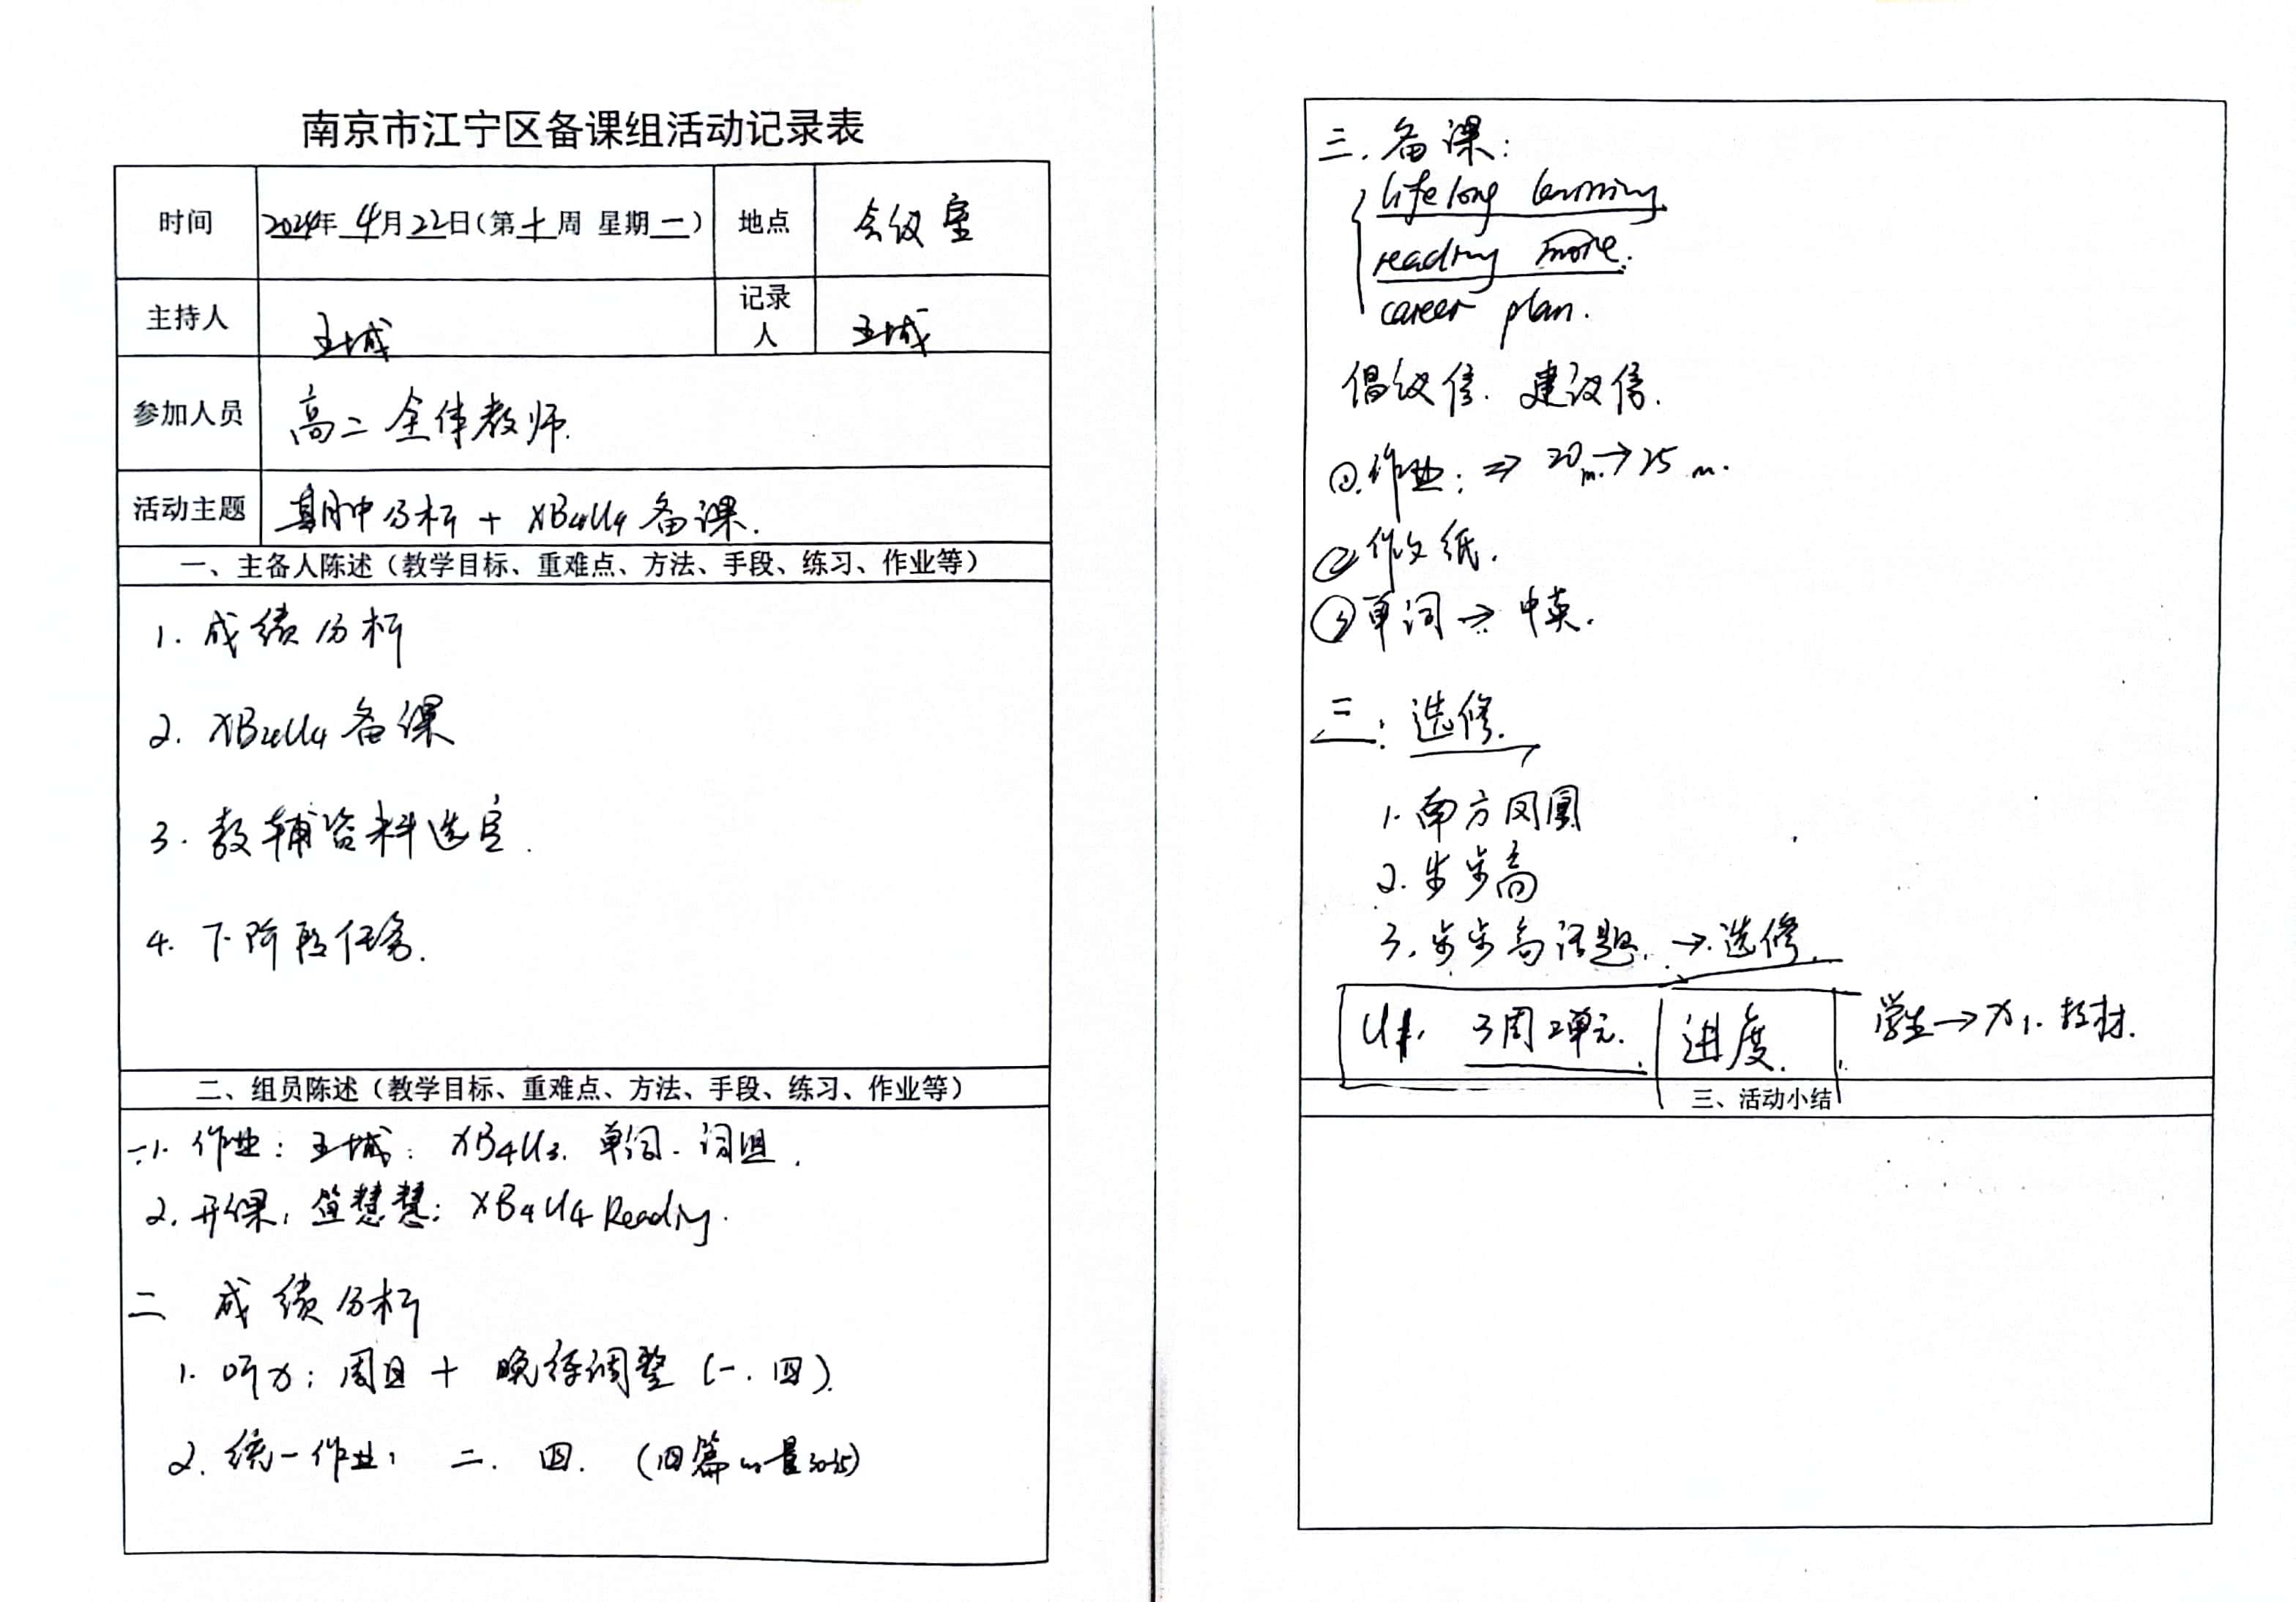 南京市江宁区备课组活动记录表
时间 2024年 4月22日(第十周 星期一) 地点 会议室
主持人 王城 记录人 王城
参加人员 高二全体教师.
活动主题 期中分析 + XB4U4 备课.
一、主备人陈述（教学目标、重难点、方法、手段、练习、作业等）
1. 成绩分析
2. XB4U4 备课
3. 教辅资料选定.
4. 下阶段任务.
二、组员陈述（教学目标、重难点、方法、手段、练习、作业等）
一1. 作业: 王城: XB4U3. 单词. 词组.
2. 开课: 慧慧: XB4U4 Reading.
二 成绩分析
1. 听力: 周日 + 晚练调整 (一.四).
2. 统一作业: 二. 四. (四篇 量30-35)
三. 备课:
lifelong learning
reading more.
career plan.
倡议信. 建议信.
①.作业: ⇒ 20m.→25m.
②作文纸.
③单词 → 中英.
三: 选修.
1. 南方凤凰
2. 步步高
3. 步步高话题. → 选修.
U1. 3周2单元. 进度. 学生→X1. 教材.
三、活动小结